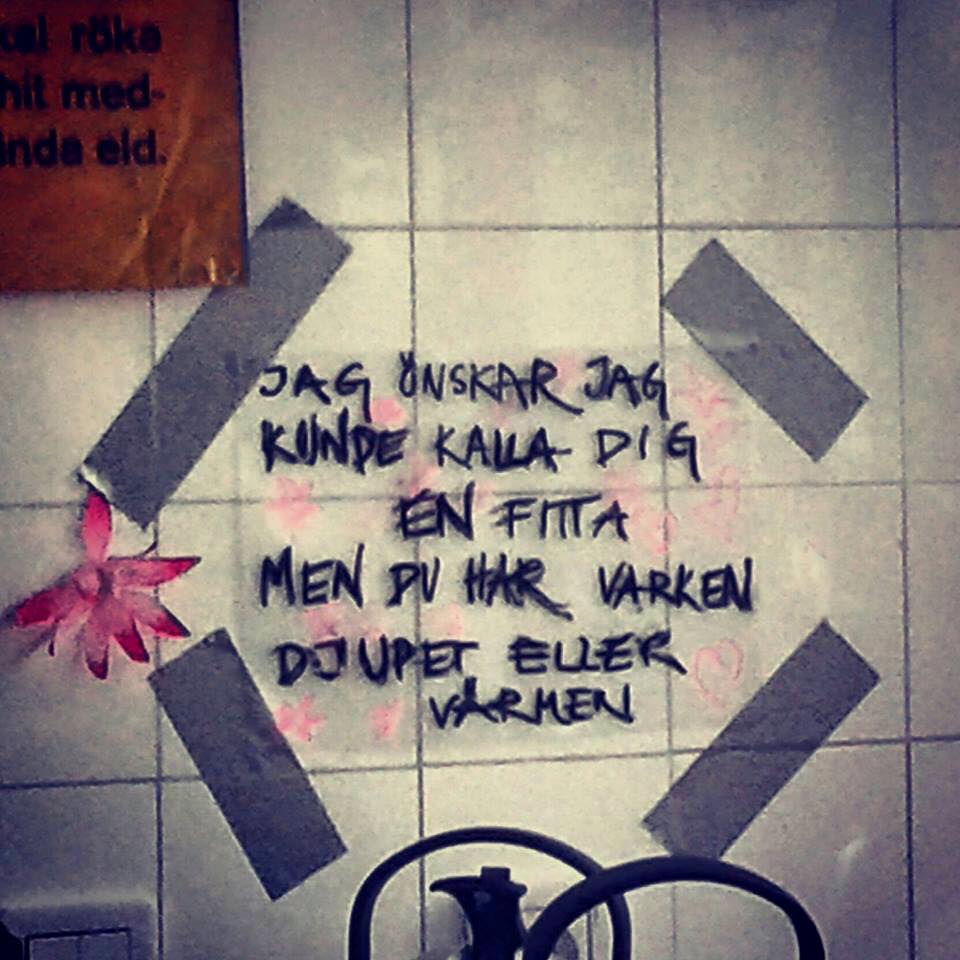 röka
hit med-
eld.
JAG ÖNSKAR JAG
KUNDE KALLA DIG
EN FITTA
MEN DU HAR VARKEN
DJUPET ELLER
VÄRMEN